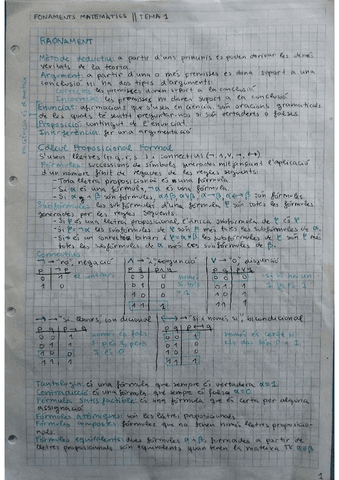 FONAMENTS MATEMÀTICS || TEMA 1
RAONAMENT
Mètode deductiu: a partir d'uns principis es poden derivar les demés
veritats de la teoria.
Argument: a partir d'una o més premisses es dona suport a una
conclusió. Hi ha dos tipus d'arguments:
Correcte: les premisses donen suport a la conclusió
Incorrecte: les premisses no donen suport a la conclusió.
Enunciat: afirmacions que s'usen en ciència, són oracions gramaticals
de les quals té sentit preguntar-nos si són vertaderes o falses.
Proposició: contingut de l'enunciat.
Inferència: fer una argumentació
Càlcul Proposicional Formal
S'usen lletres (p, q, r, s...) i connectius (¬, ∧, ∨, →, ↔)
Fórmules: successions de símbols generades mitjançant l'aplicació
d'un nombre finit de vegades de les regles següents:
- Tota lletra proposicional és una fórmula.
- Si α és una fórmula, ¬α és una fórmula.
- Si α i β són fórmules, α∧β, α∨β, α→β, α↔β són fórmules.
Subfórmules: les subfórmules d'una fórmula φ són totes les fórmules
generades per les regles següents:
- Si φ és una lletra proposicional, l'única subfórmula de φ és φ
- Si φ=¬α les subfórmules de φ són φ més totes les subfórmules de α.
- Si * és un connectiu binari i φ=α*β les subfórmules de φ són φ més
totes les subfórmules de α més les subfórmules de β.
Connectius
¬ → "no", negació
∧ → "i", conjunció
∨ → "o", disjunció
p ¬p
p q p∧q
p q p∨q
0 1
1 0
→ si, llavors, condicional
↔ → si i només si, bicondicional
p q p→q
p q p↔q
Tautologia: és una fórmula que sempre és vertadera α=1.
Contradicció: és una fórmula que sempre és falsa α=0.
Fórmula satisfactible: és una fórmula que és certa per alguna
assignació
Fórmules atòmiques: són les lletres proposicionals.
Fórmules compostes: fórmules que no sónn només lletres proposicio-
nals.
Fórmules equivalents: dues fórmules α i β, formades a partir de
lletres proposicionals són equivalents quan tenen la mateixa TV α≡β
1